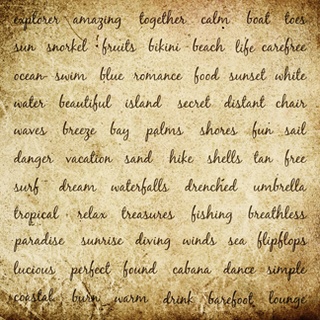 explorer amazing together calm boat toes
sun snorkel fruits bikini beach life carefree
ocean swim blue romance food sunset white
water beautiful island secret distant chair
waves breeze bay palms shores fun sail
danger vacation sand hike shells tan free
surf dream waterfalls drenched umbrella
tropical relax treasures fishing breathless
paradise sunrise diving winds sea flipflops
lucious perfect found cabana dance simple
coastal burn warm drink barefoot lounge